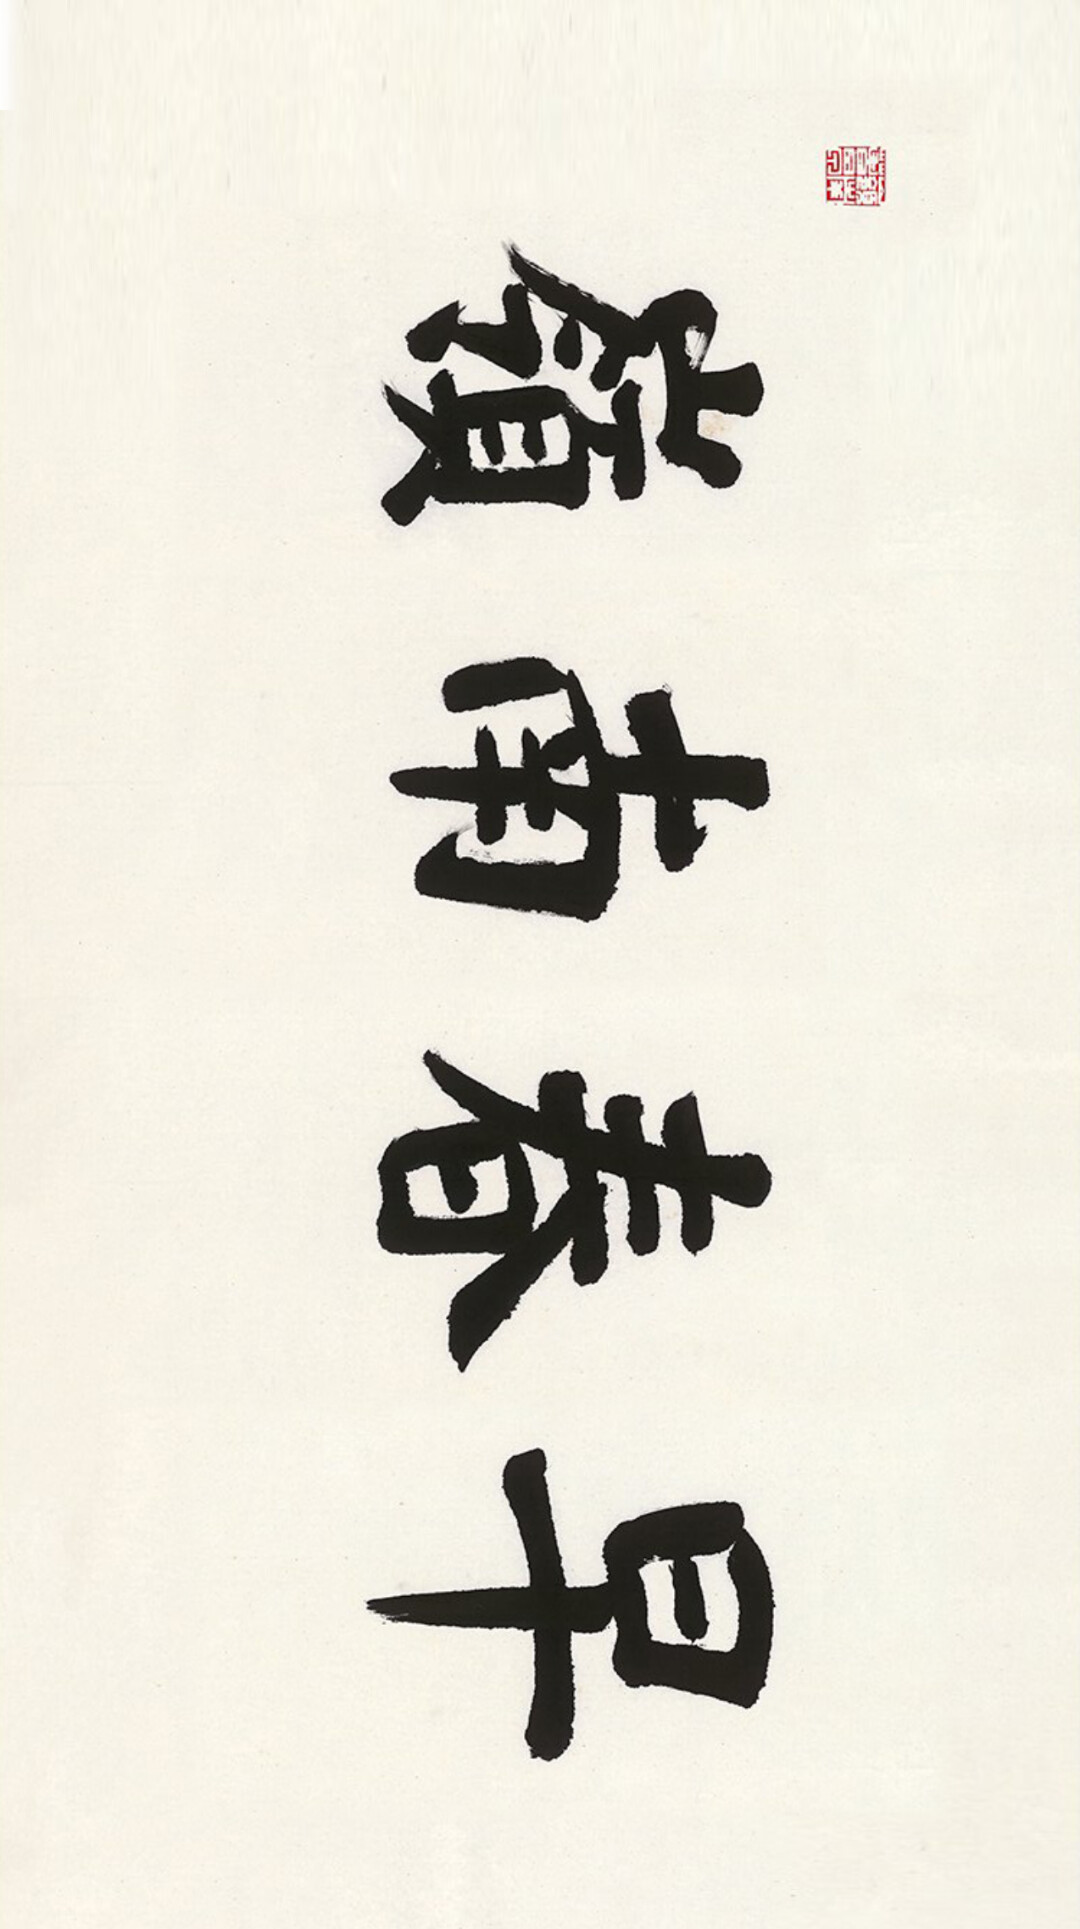 嶺南春早